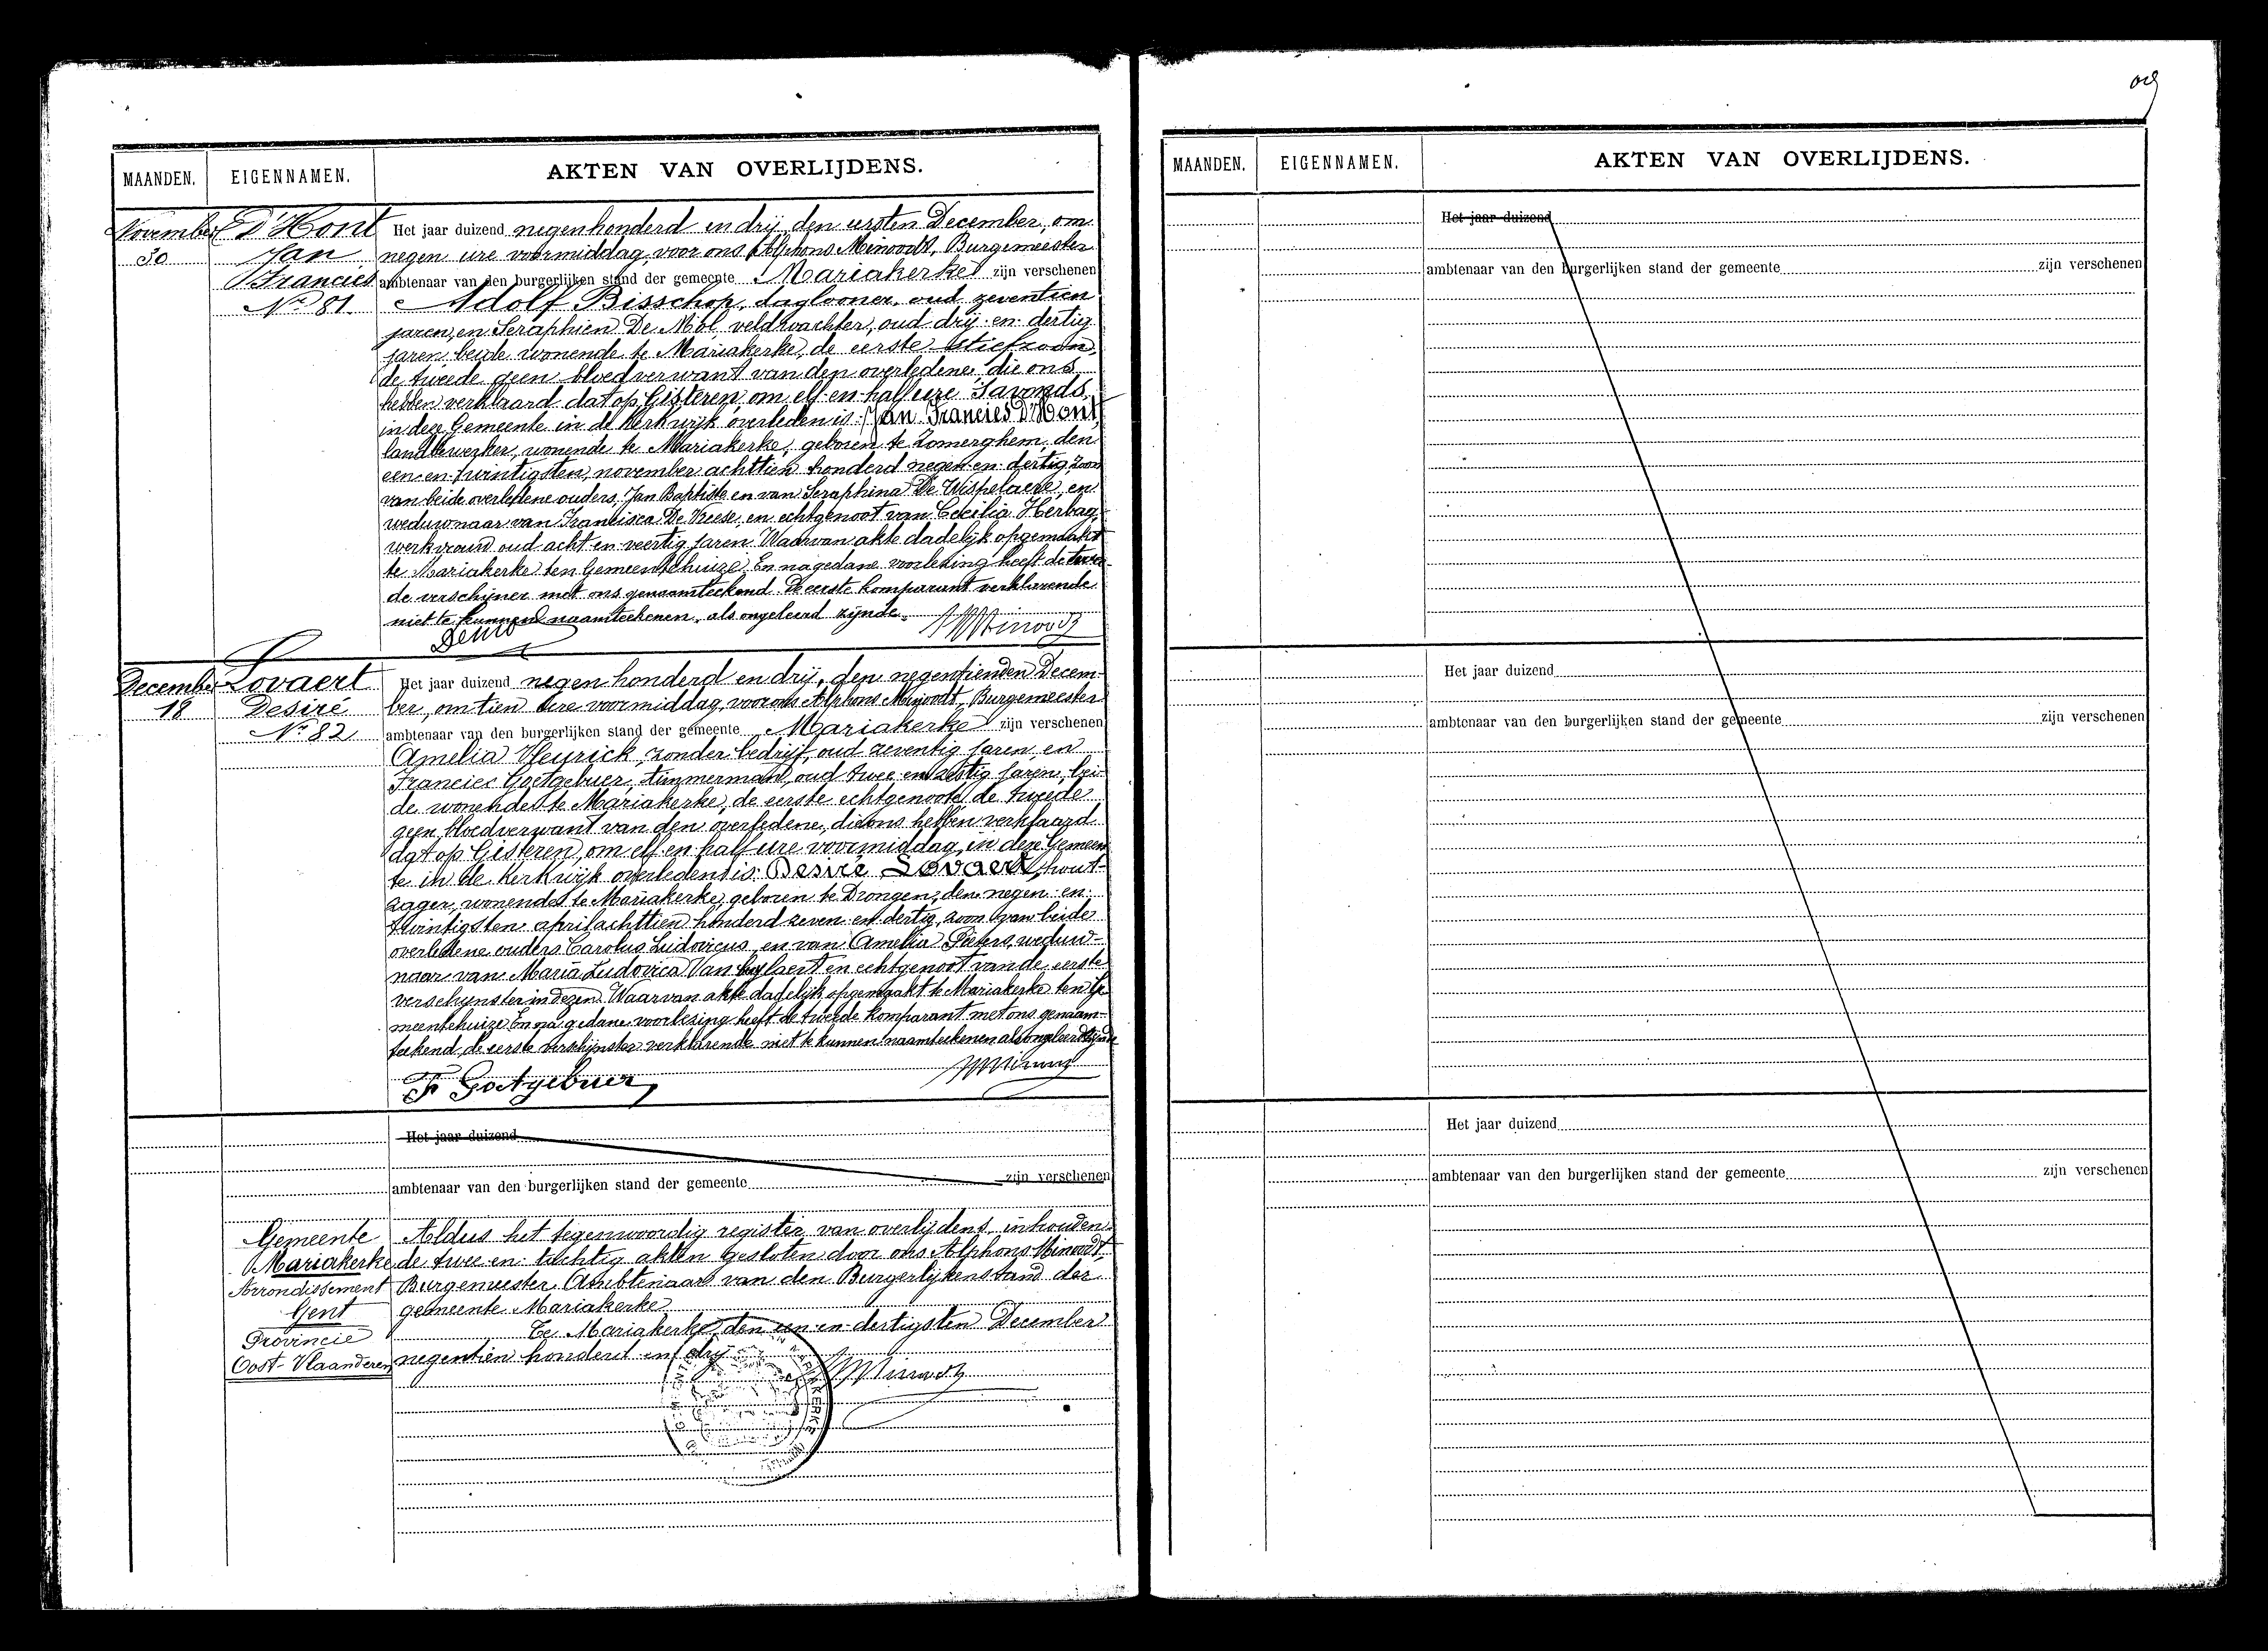 MAANDEN.
EIGENNAMEN.
AKTEN VAN OVERLIJDENS.
November
30
D'Hont
Jan
Francies
No 81.
Het jaar duizend negenhonderd en drij, den eersten December, om
negen ure voormiddag, voor ons Alphons Minoodt, Burgemeester
ambtenaar van den burgerlijken stand der gemeente Mariakerke zijn verschenen
Adolf Bisschop, daglooner, oud zeventien
jaren, en Seraphien De Mol veldwachter, oud drij-en-dertig
jaren beide wonende te Mariakerke, de eerste stiefzoon,
de tweede geen bloedverwant van den overledene, die ons
hebben verklaard dat op Gisteren, om elf en half ure 's avonds,
in deze Gemeente in de Kerkwijk overleden is: Jan Francies D'Hont,
landbewerker, wonende te Mariakerke, geboren te Zomerghem, den
een-en-twintigsten november achttien honderd negen-en-dertig, zoon
van beide overledene ouders, Jan Baptiste en van Seraphina De Wispelaere, en
weduwnaar van Francisca De Vreese, en echtgenoot van Cecilia Herbag,
werkvrouw oud acht en veertig jaren. Waarvan akte dadelijk opgemaakt
te Mariakerke ten Gemeentehuize. En na gedane voorlezing heeft de twee-
de verschijner met ons genaamteekend. De eerste komparant verklarende
niet te kunnen naamteekenen, als ongeleerd zijnde.
December
18
Lovaert
Desiré
No 82
Het jaar duizend negen honderd en drij, den negentienden Decem-
ber, om tien ure voormiddag, voor ons Alphons Minoodt, Burgemeester
ambtenaar van den burgerlijken stand der gemeente Mariakerke zijn verschenen
Amelia Vleyrick, zonder bedrijf, oud zeventig jaren, en
Francies Goetgebuer, timmerman, oud twee en zestig jaren, bei-
de wonende te Mariakerke, de eerste echtgenoote, de tweede
geen bloedverwant van den overledene, die ons hebben verklaard
dat op Gisteren, om elf en half ure voormiddag, in deze Gemeen
te in de Kerkwijk overleden is: Desiré Lovaert, hout-
zager, wonende te Mariakerke, geboren te Drongen, den negen-en-
twintigsten april achttien honderd zeven-en-dertig, zoon van beide
overledene ouders Carolus Ludovicus, en van Amelia Pieters, weduw-
naar van Maria Ludovica Van en echtgenoot van de eerste
verschijnster in dezen. Waarvan akte dadelijk opgemaakt te Mariakerke ten Ge
meentehuize. En na gedane voorlezing heeft de tweede komparant met ons genaam-
teekend, de eerste verschijnster verklarende niet te kunnen naamteekenen als ongeleerd zijnde
F Goetgebuer
Het jaar duizend
ambtenaar van den burgerlijken stand der gemeente zijn verschenen
Gemeente
Mariakerke
Arrondissement
Gent
Provincie
Oost-Vlaanderen
Aldus het tegenwoordig register van overlijdens, inhouden-
de twee en tachtig akten gesloten door ons Alphons Minoodt,
Burgemeester, Ambtenaar van den Burgerlijken stand der
gemeente Mariakerke
Te Mariakerke, den een-en-dertigsten December
negentien honderd en drij
MAANDEN.
EIGENNAMEN.
AKTEN VAN OVERLIJDENS.
Het jaar duizend
ambtenaar van den burgerlijken stand der gemeente zijn verschenen
Het jaar duizend
ambtenaar van den burgerlijken stand der gemeente zijn verschenen
Het jaar duizend
ambtenaar van den burgerlijken stand der gemeente zijn verschenen